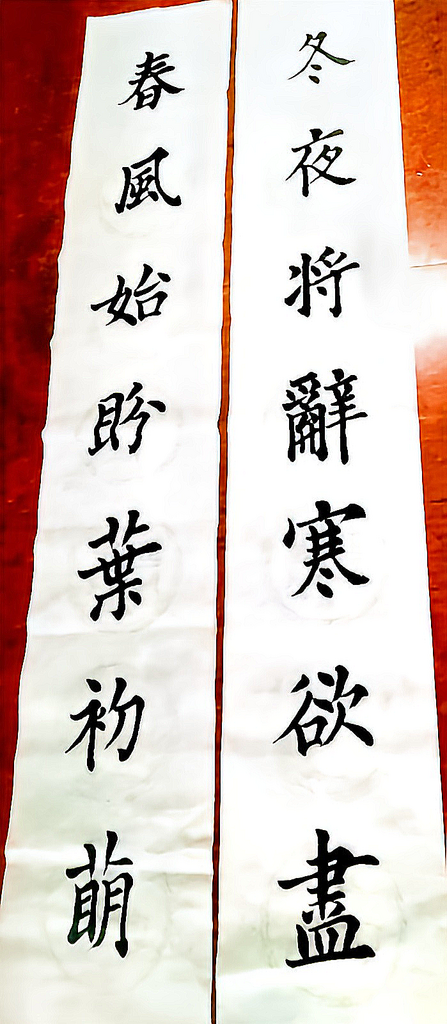 冬夜将辭寒欲盡
春風始盼葉初萌